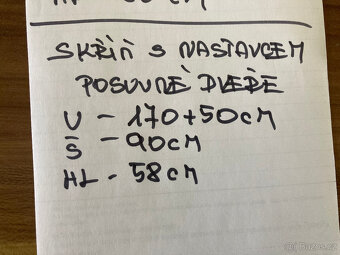 SKŘÍŇ S NASTAVCEM
POSUVNÉ DVEŘE
V - 170+50CM
Š - 90CM
HL - 58CM
Bazos.cz